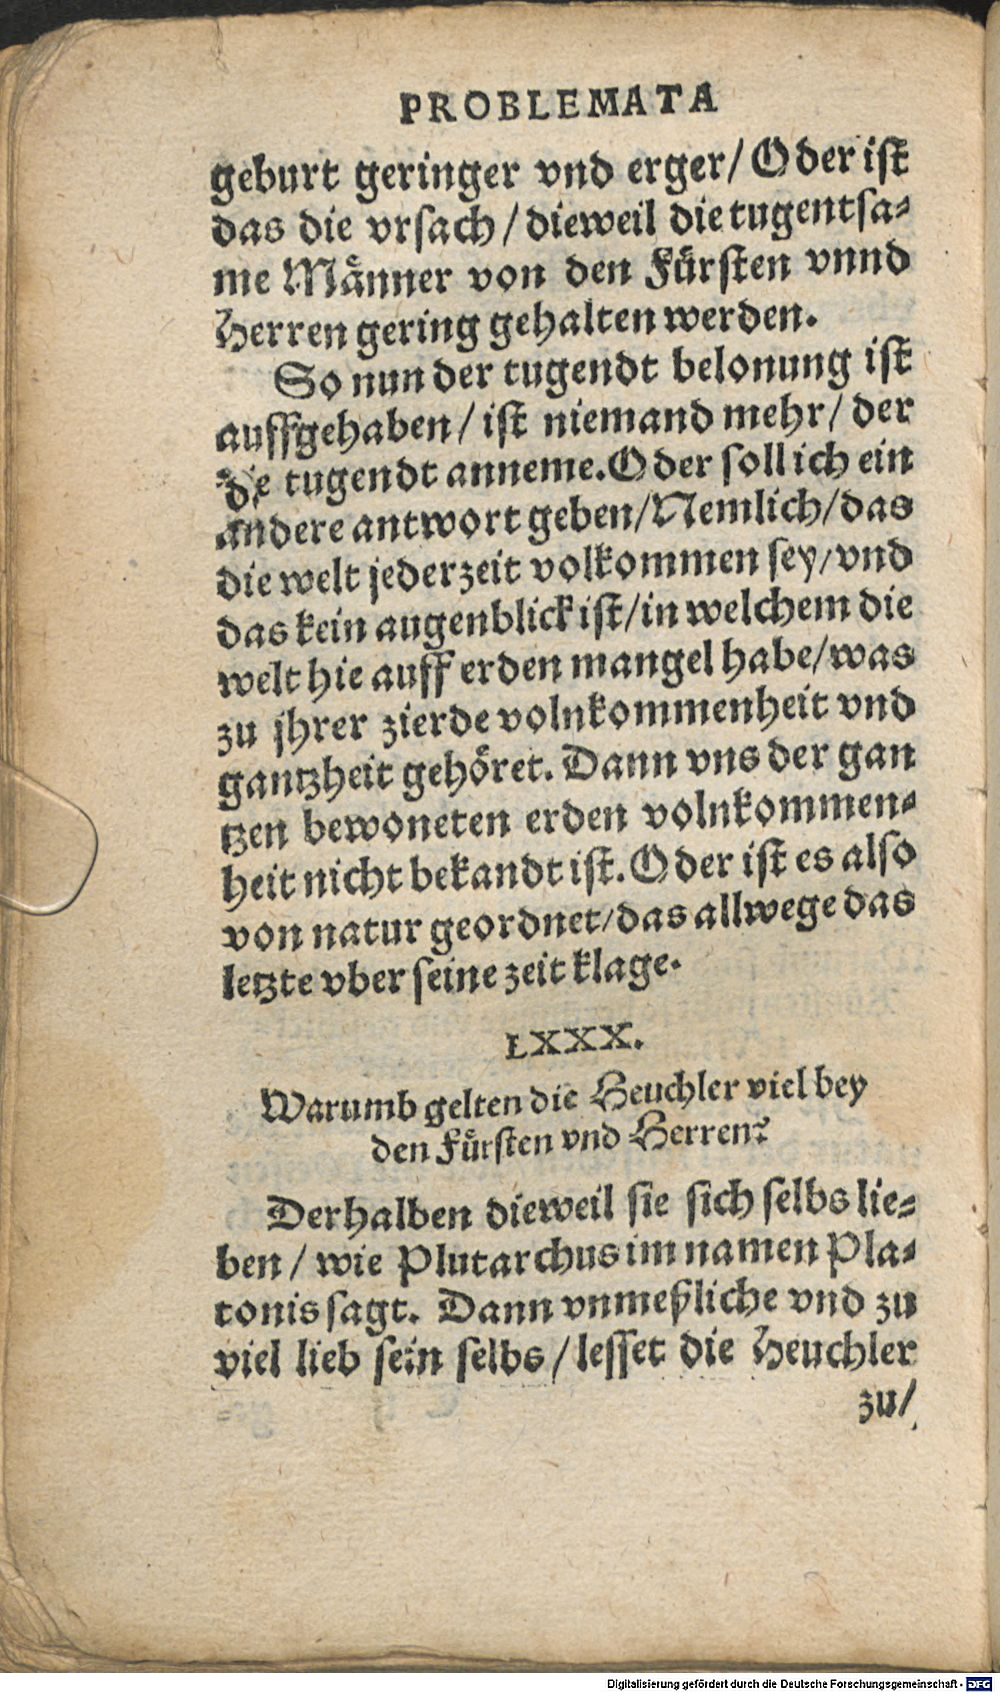 PROBLEMATA
geburt geringer vnd erger/ Oder ist
das die vrsach/ dieweil die tugentsa-
me Maͤnner von den Fuͤrsten vnnd
Herren gering gehalten werden.
So nun der tugendt belonung ist
auffgehaben/ ist niemand mehr/ der
die tugendt anneme. Oder soll ich ein
andere antwort geben/ Nemlich/ das
die welt jederzeit volkommen sey/ vnd
das kein augenblick ist/ in welchem die
welt hie auff erden mangel habe/ was
zu jhrer zierde volnkommenheit vnd
gantzheit gehoͤret. Dann vns der gan
tzen bewoneten erden volnkommen-
heit nicht bekandt ist. Oder ist es also
von natur geordnet/ das allwege das
letzte vber seine zeit klage.
LXXX.
Warumb gelten die Heuchler viel bey
den Fuͤrsten vnd Herren?
Derhalben dieweil sie sich selbs lie-
ben/ wie Plutarchus im namen Pla-
tonis sagt. Dann vnmeßliche vnd zu
viel lieb sein selbs/ lesset die Heuchler
zu/
Digitalisierung gefördert durch die Deutsche Forschungsgemeinschaft - DFG